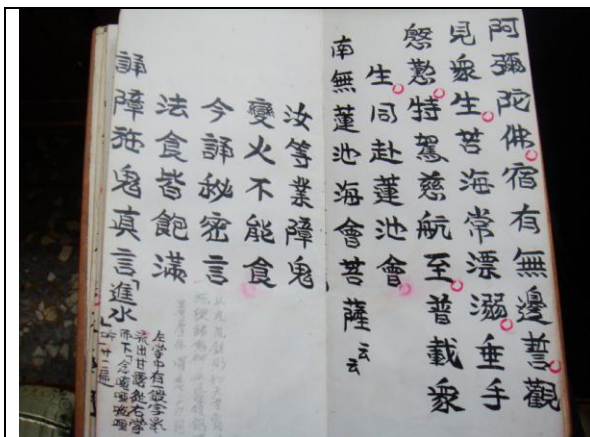 阿彌陀佛。宿有無邊誓。觀
見衆生。苦海常漂溺。垂手
慇懃。特駕慈航至。普載衆
生。同赴蓮池會。
南無蓮池海會菩薩云云
汝等業障鬼
變火不能食
今誦秘密言
法食皆飽滿
誦障施鬼真言「進水」
左掌中有一鑁字
流出甘露
而下